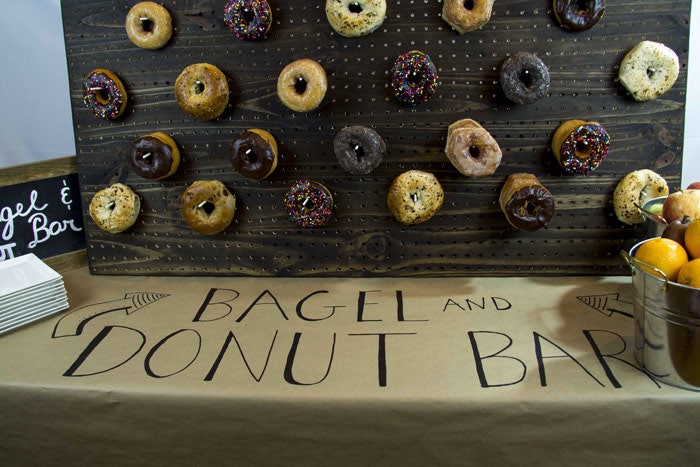 & 
Bar
BAGEL AND
DONUT BAR